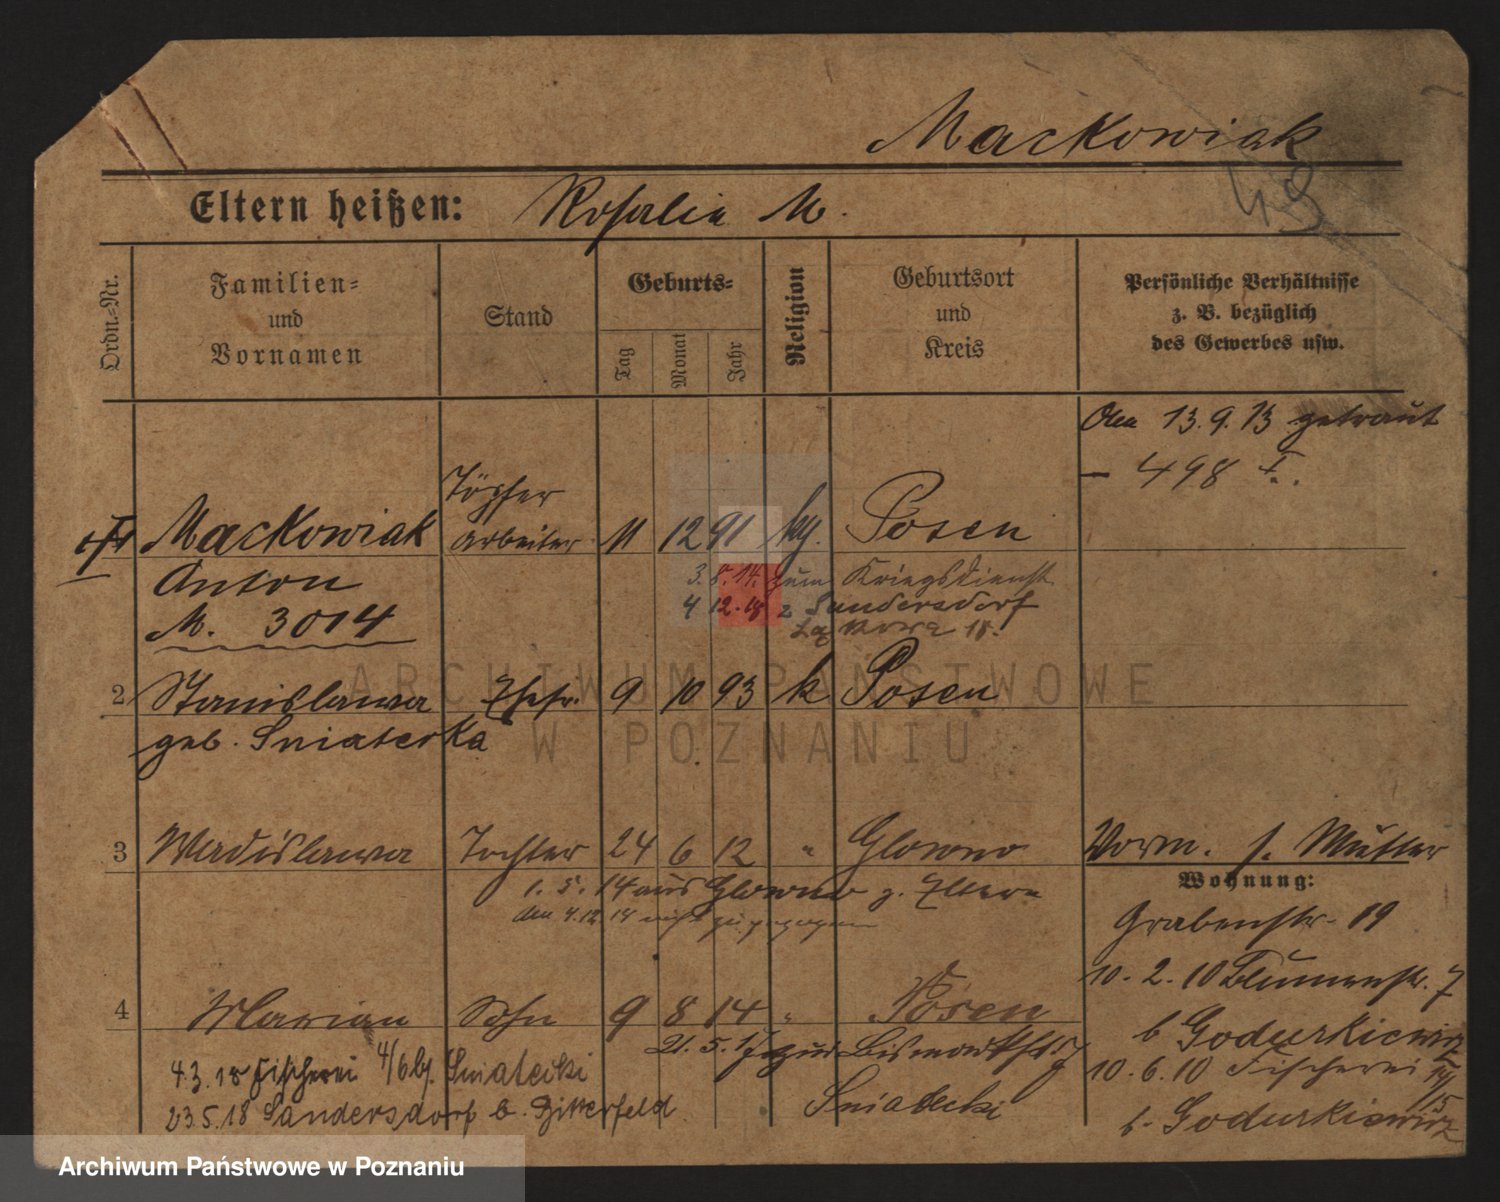 Mackowiak
49
Eltern heißen: Rosalie M.
Ordn.-Nr.
Familien-
und
Vornamen
Stand
Geburts-
Tag
Monat
Jahr
Religion
Geburtsort
und
Kreis
Persönliche Verhältnisse
z. B. bezüglich
des Gewerbes usw.
13.9.13 getraut
— 498 I.
Töpfer
Mackowiak Arbeiter 11 12 91 Posen
Anton 3.8.14. zum Kriegsdienst
M. 3014 4 12.18 z Sandersdorf
18.
2 Stanislawa Ehefr. 9 10 93 k Posen
geb. Sniaterka
3 Wladislawa Tochter 24 6 12 " Glowno Vorm. s. Mutter
Wohnung:
1. 5. 14 aus Glowno z. Eltern
4.12.18 nicht zugezogen
Grabenstr. 19
10. 2. 10 Blumenstr. 7
4 Marian Sohn 9 8 14 " Posen
b Godurkiewicz
21. 5. 17 zur Bismarkstr
4.3.18 Fischerei 4/6 bj. Sniatecki
10. 6. 10 Fischerei
23.5.18 Sandersdorf b. Bitterfeld Sniatecki
b. Godurkiewicz
ARCHIWUM PAŃSTWOWE
W POZNANIU
Archiwum Państwowe w Poznaniu